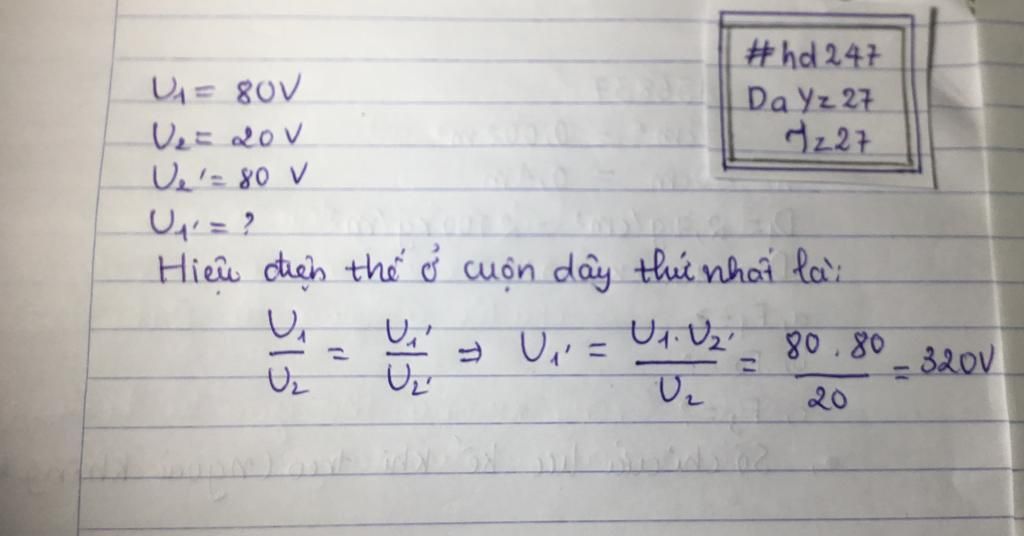 #hd247
DaYz27
Yz27
U1 = 80V
U2 = 20 V
U2' = 80 V
U1' = ?
Hiệu điện thế ở cuộn dây thứ nhất là:
U1/U2 = U1'/U2' ⇒ U1' = U1.U2'/U2 = 80.80/20 = 320V